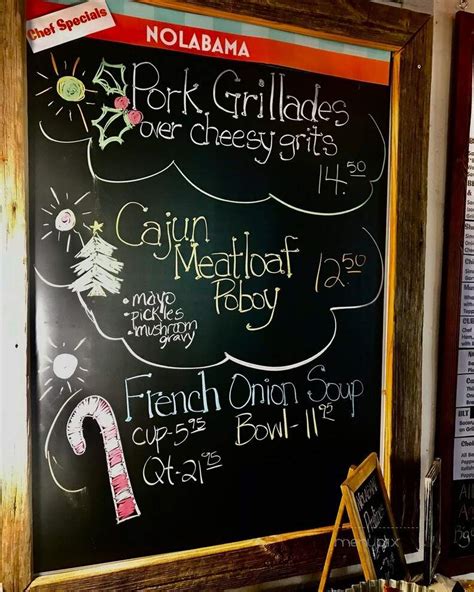 Chef Specials
NOLABAMA
Pork Grillades
over cheesy grits
14.50
Cajun
Meatloaf
Poboy
12.50
• mayo
• pickles
• mushroom
gravy
French Onion Soup
Cup-5.95
Bowl-11.95
Qt-21.95
menupix
BLT